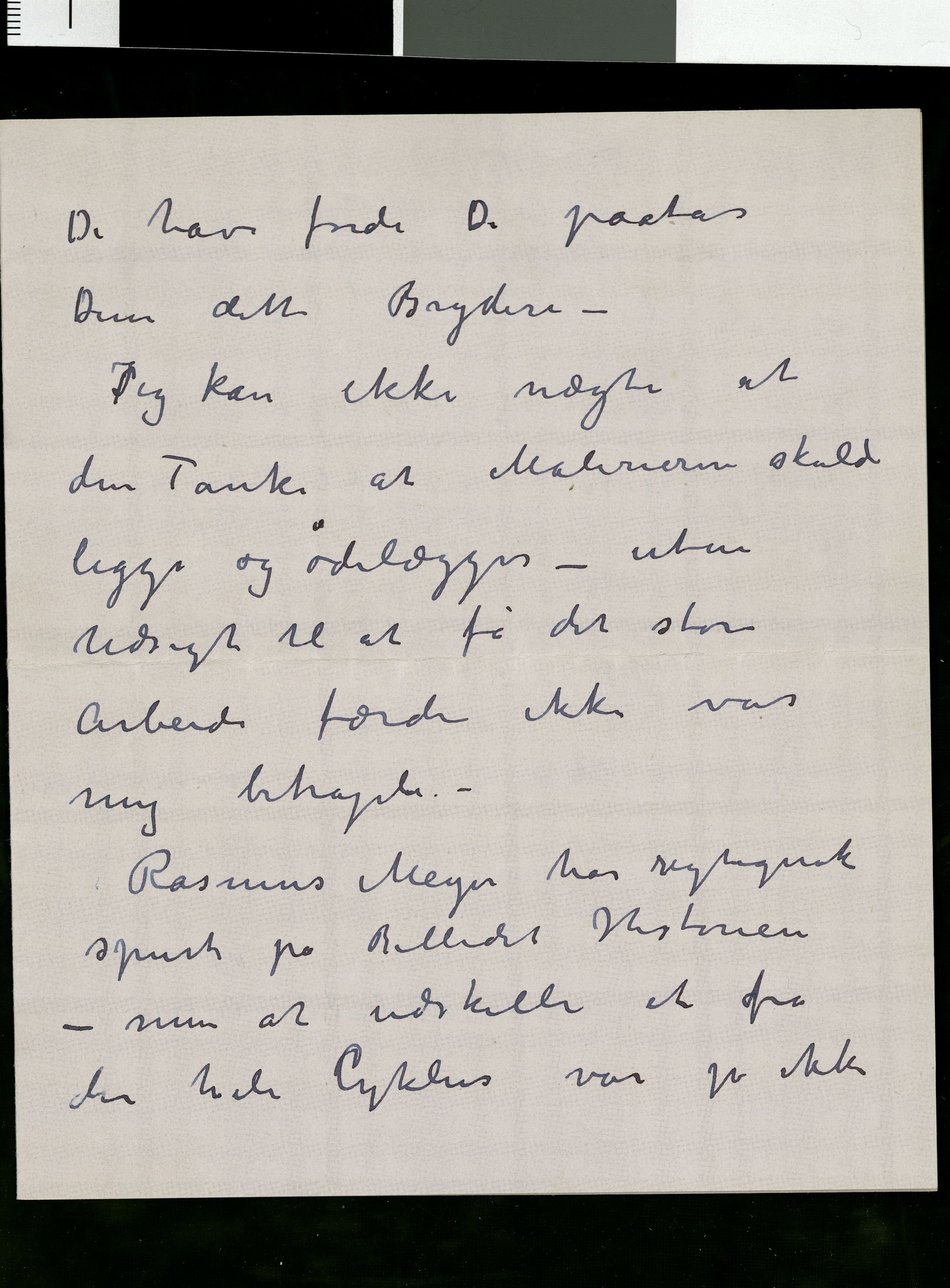 De have fordi De paatar
Dem dette Bryderi –
Jeg kan ikke nægte at
den Tanke at Malerierne skulde
ligge og ödelægges – uten
Udsigt til at få det store
Arbeide færdi ikke var
mig behagelig. –
Rasmus Meyer har rigtignok
spurt på Billedet Historien
– men at udskille et fra
den hele Cyklus var jo ikke